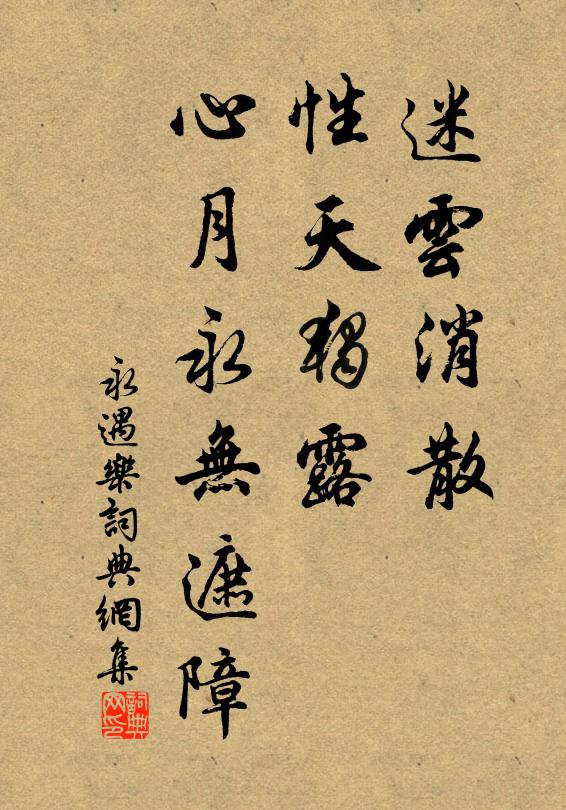 迷雲消散
性天獨露
心月永無遮障
永遇樂詞典網集
詞典
网印